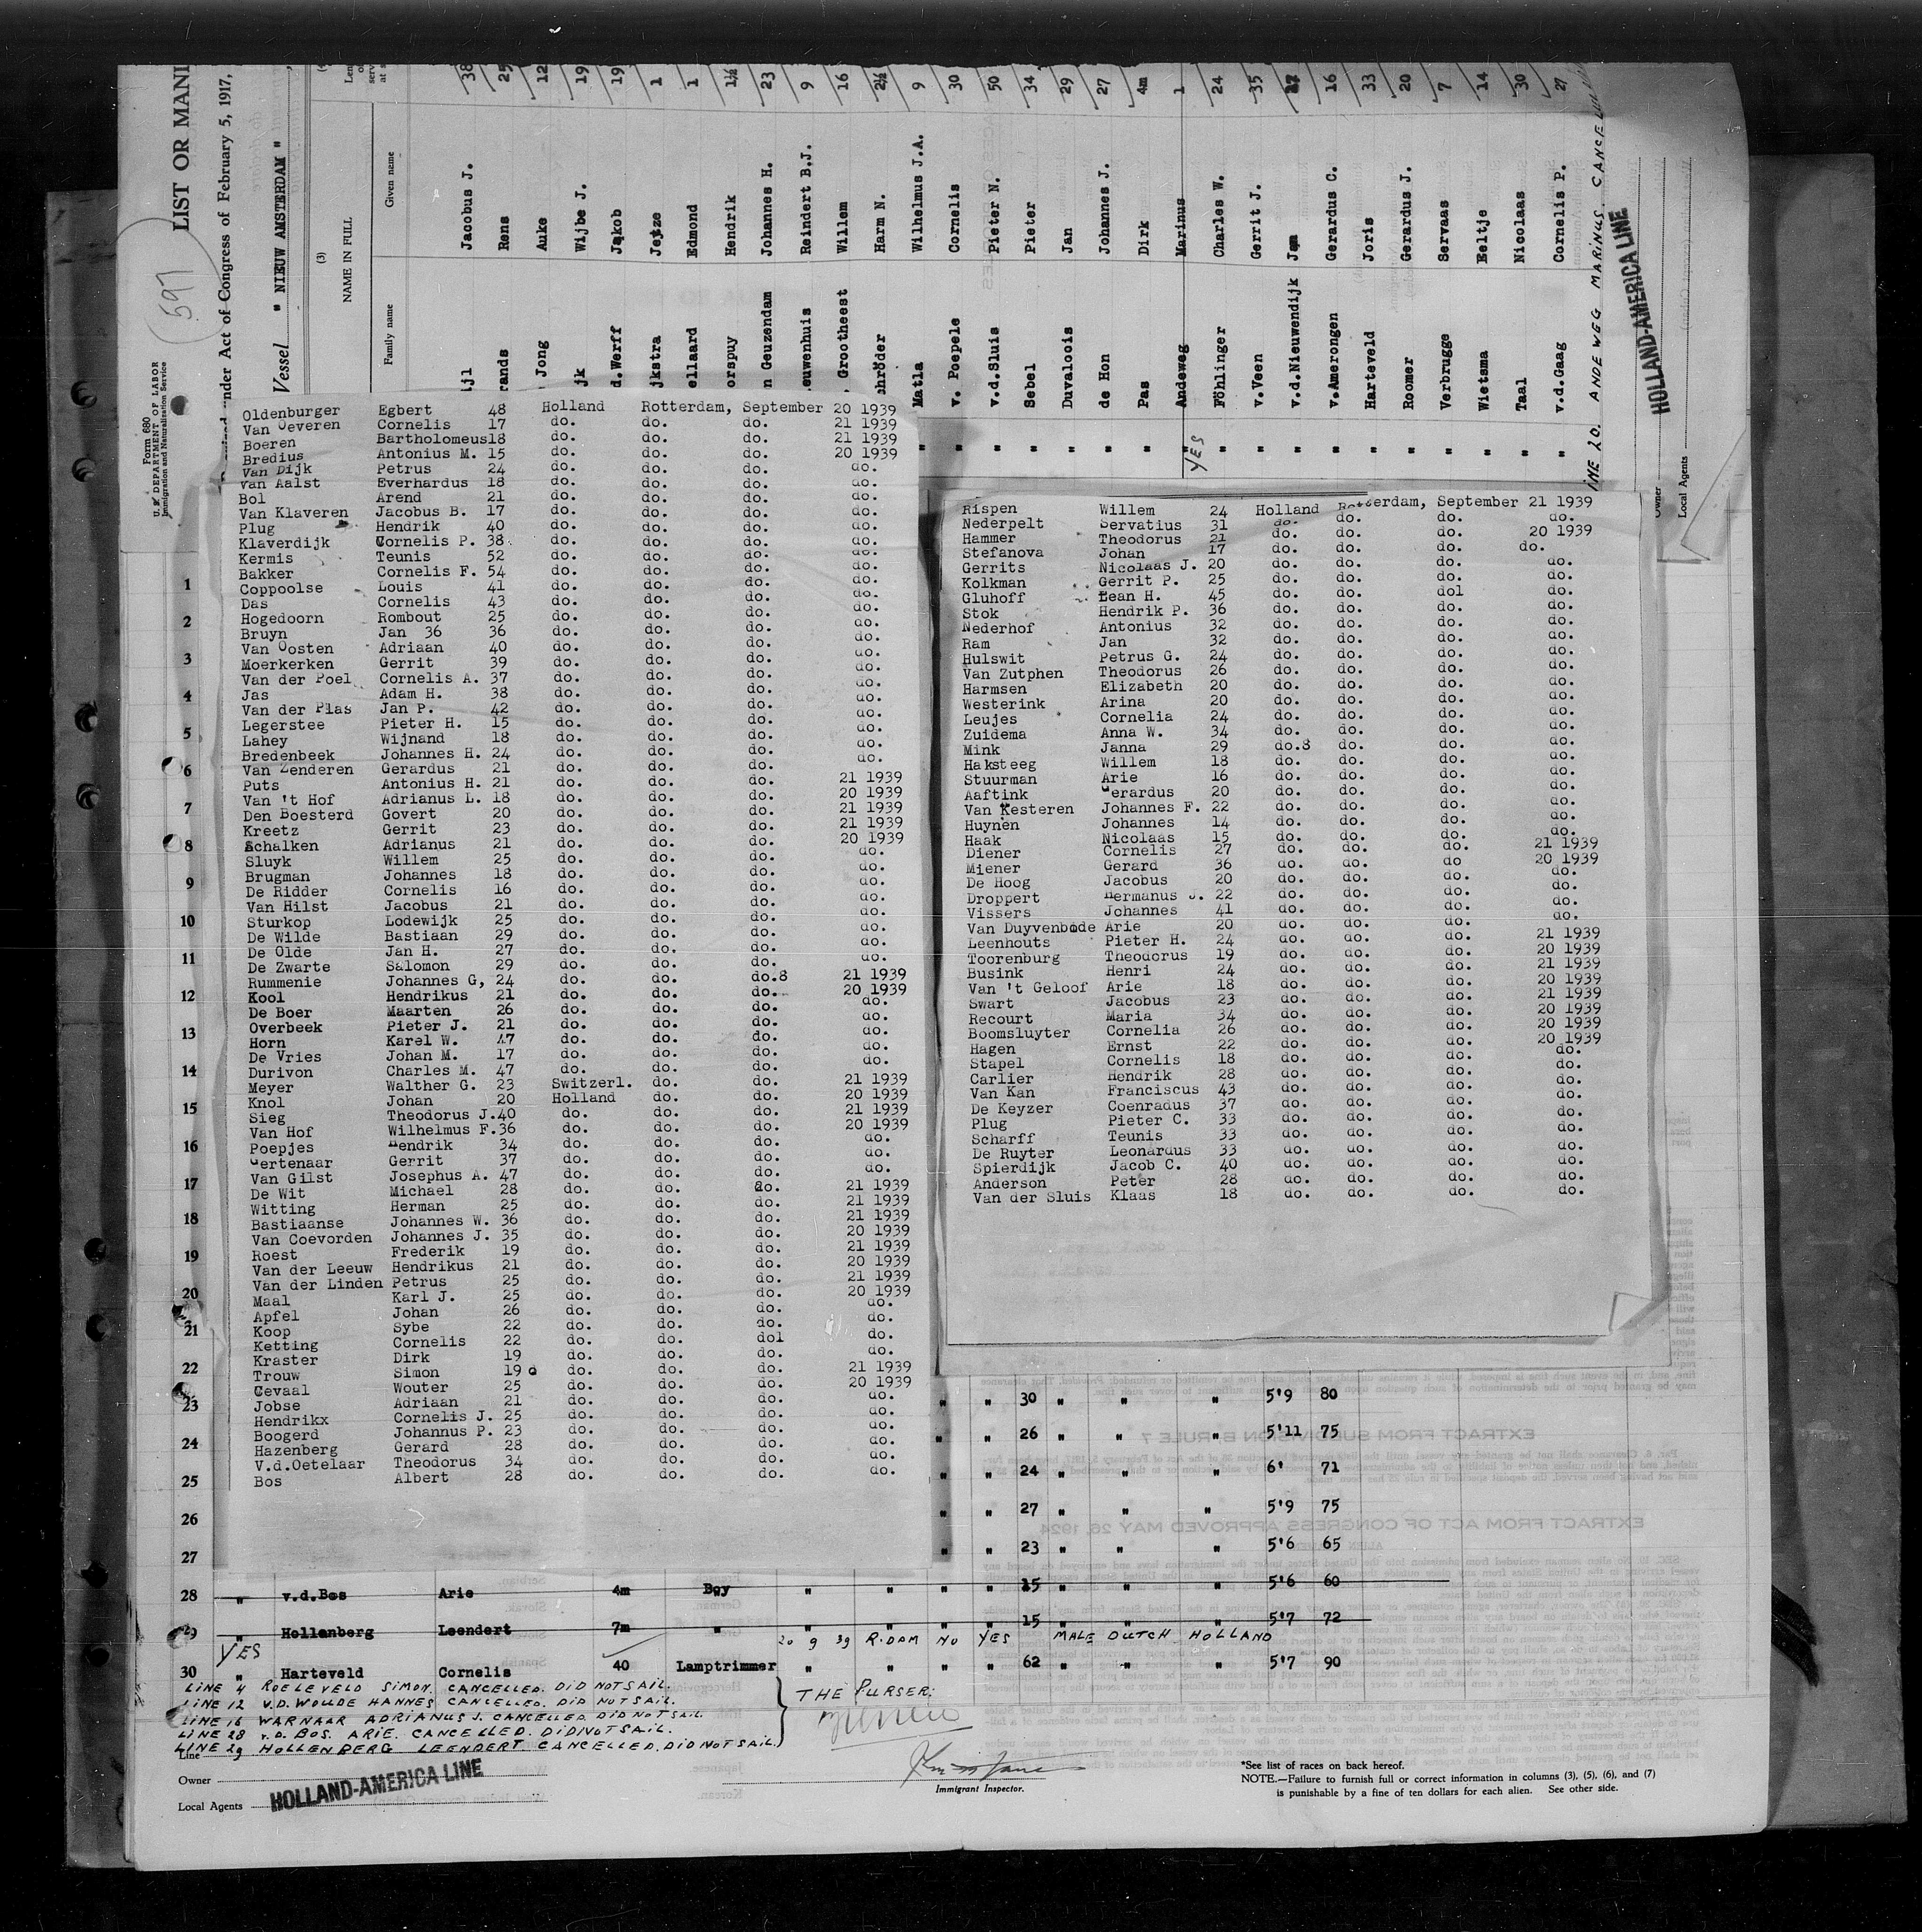 LIST OR MANI
Under Act of Congress of February 5, 1917,
Vessel " NIEUW AMSTERDAM "
(597)
Form 680
U. S. DEPARTMENT OF LABOR
Immigration and Naturalization Service
(3)
NAME IN FULL
Family name Given name
Jacobus J. 38
Rens 25
Jong Auke 12
Wijbe J. 19
d.Werff Jakob 19
jkstra Jetze 1
ellaard Edmond 1
orspuy Hendrik 1½
n Geuzendam Johannes H. 23
euwenhuis Reindert B.J. 9
Grootheest Willem 16
hröder Harm N. 2½
Matla Wilhelmus J.A. 9
v. Poepele Cornelis 30
v.d.Sluis Pieter N. 50
Sebel Pieter 34
Duvaloois Jan 29
de Hon Johannes J. 27
Pas Dirk 4m
Andeweg Marinus 1
YES
Föhlinger Charles W. 24
v.Veen Gerrit J. 35
v.d.Nieuwendijk Jan
v.Amerongen Gerardus C. 16
Harteveld Joris 33
Roomer Gerardus J. 20
Verbrugge Servaas 7
Wietsma Eeltje 14
Taal Nicolaas 30
v.d.Gaag Cornelis P. 27
LINE 20. ANDEWEG MARINUS. CANCELLED
HOLLAND-AMERICA LINE
Owner
Local Agents
Oldenburger Egbert 48 Holland Rotterdam, September 20 1939
Van Oeveren Cornelis 17 do. do. do. 21 1939
Boeren Bartholomeus18 do. do. do. 21 1939
Bredius Antonius M. 15 do. do. do. 20 1939
Van Dijk Petrus 24 do. do. do. do.
Van Aalst Everhardus 18 do. do. do. do.
Bol Arend 21 do. do. do. do.
Van Klaveren Jacobus B. 17 do. do. do. do.
Plug Hendrik 40 do. do. do. do.
Klaverdijk Cornelis P. 38 do. do. do. do.
Kermis Teunis 52 do. do. do. do.
Bakker Cornelis F. 54 do. do. do. do.
Coppoolse Louis 41 do. do. do. do.
Das Cornelis 43 do. do. do. do.
Hogedoorn Rombout 25 do. do. do. do.
Bruyn Jan 36 36 do. do. do. do.
Van Oosten Adriaan 40 do. do. do. do.
Moerkerken Gerrit 39 do. do. do. do.
Van der Poel Cornelis A. 37 do. do. do. do.
Jas Adam H. 38 do. do. do. do.
Van der Plas Jan P. 42 do. do. do. do.
Legerstee Pieter H. 15 do. do. do. do.
Lahey Wijnand 18 do. do. do. do.
Bredenbeek Johannes H. 24 do. do. do. do.
Van Zenderen Gerardus 21 do. do. do. do.
Puts Antonius H. 21 do. do. do. 21 1939
Van 't Hof Adrianus L. 18 do. do. do. 20 1939
Den Boesterd Govert 20 do. do. do. 21 1939
Kreetz Gerrit 23 do. do. do. 21 1939
Schalken Adrianus 21 do. do. do. 20 1939
Sluyk Willem 25 do. do. do. do.
Brugman Johannes 18 do. do. do. do.
De Ridder Cornelis 16 do. do. do. do.
Van Hilst Jacobus 21 do. do. do. do.
Sturkop Lodewijk 25 do. do. do. do.
De Wilde Bastiaan 29 do. do. do. do.
De Olde Jan H. 27 do. do. do. do.
De Zwarte Salomon 29 do. do. do. do.
Rummenie Johannes G, 24 do. do. do.8 21 1939
Kool Hendrikus 21 do. do. do. 20 1939
De Boer Maarten 26 do. do. do. do.
Overbeek Pieter J. 21 do. do. do. do.
Horn Karel W. 47 do. do. do. do.
De Vries Johan M. 17 do. do. do. do.
Durivon Charles M. 47 do. do. do. do.
Meyer Walther G. 23 Switzerl. do. do. 21 1939
Knol Johan 20 Holland do. do. 20 1939
Sieg Theodorus J.40 do. do. do. 21 1939
Van Hof Wilhelmus F.36 do. do. do. 20 1939
Poepjes Hendrik 34 do. do. do. do.
Gertenaar Gerrit 37 do. do. do. do.
Van Gilst Josephus A. 47 do. do. do. do.
De Wit Michael 28 do. do. do. 21 1939
Witting Herman 25 do. do. do. 21 1939
Bastiaanse Johannes W. 36 do. do. do. 21 1939
Van Coevorden Johannes J. 35 do. do. do. 20 1939
Roest Frederik 19 do. do. do. 21 1939
Van der Leeuw Hendrikus 21 do. do. do. 20 1939
Van der Linden Petrus 25 do. do. do. 21 1939
Maal Karl J. 25 do. do. do. 20 1939
Apfel Johan 26 do. do. do. do.
Koop Sybe 22 do. do. do. do.
Ketting Cornelis 22 do. do. dol do.
Kraster Dirk 19 do. do. do. do.
Trouw Simon 19 do. do. do. 21 1939
Cevaal Wouter 25 do. do. do. 20 1939
Jobse Adriaan 21 do. do. do. do.
Hendrikx Cornelis J. 25 do. do. do. do.
Boogerd Johannus P. 23 do. do. do. do.
Hazenberg Gerard 28 do. do. do. do.
V.d.Oetelaar Theodorus 34 do. do. do. do.
Bos Albert 28 do. do. do. do.
Rispen Willem 24 Holland Rotterdam, September 21 1939
Nederpelt Servatius 31 do. do. do. do.
Hammer Theodorus 21 do. do. do. 20 1939
Stefanova Johan 17 do. do. do. do.
Gerrits Nicolaas J. 20 do. do. do. do.
Kolkman Gerrit P. 25 do. do. do. do.
Gluhoff Bean H. 45 do. do. dol do.
Stok Hendrik P. 36 do. do. do. do.
Nederhof Antonius 32 do. do. do. do.
Ram Jan 32 do. do. do. do.
Hulswit Petrus G. 24 do. do. do. do.
Van Zutphen Theodorus 26 do. do. do. do.
Harmsen Elizabeth 20 do. do. do. do.
Westerink Arina 20 do. do. do. do.
Leujes Cornelia 24 do. do. do. do.
Zuidema Anna W. 34 do. do. do. do.
Mink Janna 29 do.8 do. do. do.
Haksteeg Willem 18 do. do. do. do.
Stuurman Arie 16 do. do. do. do.
Aaftink Gerardus 20 do. do. do. do.
Van Kesteren Johannes F. 22 do. do. do. do.
Huynen Johannes 14 do. do. do. do.
Haak Nicolaas 15 do. do. do. do.
Diener Cornelis 27 do. do. do. 21 1939
Miener Gerard 36 do. do. do 20 1939
De Hoog Jacobus 20 do. do. do. do.
Droppert Hermanus J. 22 do. do. do. do.
Vissers Johannes 41 do. do. do. do.
Van Duyvenbode Arie 20 do. do. do. do.
Leenhouts Pieter H. 24 do. do. do. 21 1939
Toorenburg Theodorus 19 do. do. do. 20 1939
Busink Henri 24 do. do. do. 21 1939
Van 't Geloof Arie 18 do. do. do. 20 1939
Swart Jacobus 23 do. do. do. 21 1939
Recourt Maria 34 do. do. do. 20 1939
Boomsluyter Cornelia 26 do. do. do. 20 1939
Hagen Ernst 22 do. do. do. 20 1939
Stapel Cornelis 18 do. do. do. do.
Carlier Hendrik 28 do. do. do. do.
Van Kan Franciscus 43 do. do. do. do.
De Keyzer Coenradus 37 do. do. do. do.
Plug Pieter C. 33 do. do. do. do.
Scharff Teunis 33 do. do. do. do.
De Ruyter Leonardus 33 do. do. do. do.
Spierdijk Jacob C. 40 do. do. do. do.
Anderson Peter 28 do. do. do. do.
Van der Sluis Klaas 18 do. do. do. do.
1
2
3
4
5
6
7
8
9
10
11
12
13
14
15
16
17
18
19
20
21
22
23 " " 30 " " " 5'9 80
24 " " 26 " " " 5'11 75
25 " " 24 " " " 6' 71
26 " " 27 " " " 5'9 75
27 " " 23 " " " 5'6 65
28 " v.d.Bos Arie 4m Boy " " " " 15 " " " 5'6 60
29 " Hollenberg Leendert 7m " " " " " 15 " " " 5'7 72
YES 20 9 39 R.DAM NO YES MALE DUTCH HOLLAND
30 " Harteveld Cornelis 40 Lamptrimmer " " " " 62 " " " 5'7 90
LINE 4 ROELEVELD SIMON. CANCELLED. DID NOT SAIL.
LINE 12 V.D. WOUDE HANNES CANCELLED. DID NOT SAIL.
LINE 16 WARNAAR ADRIANUS J. CANCELLED. DID NOT SAIL
LINE 28 v.D. BOS. ARIE. CANCELLED. DID NOT SAIL.
LINE 29 HOLLENBERG LEENDERT CANCELLED. DID NOT SAIL.
THE PURSER:
Line
Owner
HOLLAND-AMERICA LINE
Local Agents
Immigrant Inspector.
*See list of races on back hereof.
NOTE.—Failure to furnish full or correct information in columns (3), (5), (6), and (7)
is punishable by a fine of ten dollars for each alien. See other side.
EXTRACT FROM SUBDIVISION B, RULE 7
EXTRACT FROM ACT OF CONGRESS APPROVED MAY 26, 1924